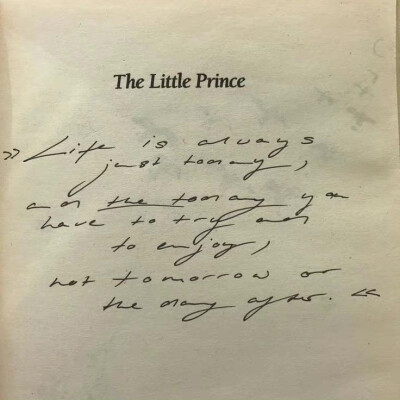 The Little Prince
» Life is always
just today,
and the today you
have to try and
to enjoy,
not tomorrow or
the day after. «